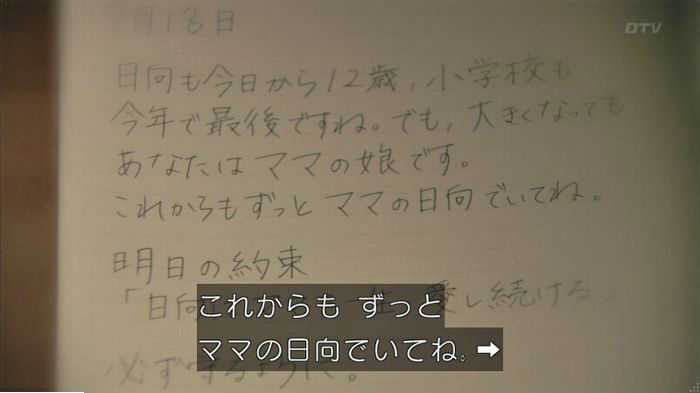 7月18日
日向も今日から12歳,小学校も
今年で最後ですね。でも,大きくなっても
あなたはママの娘です。
これからもずっとママの日向でいてね。
明日の約束
「日向 愛し続ける」
必ず守るように。
これからも ずっと
ママの日向でいてね。➡